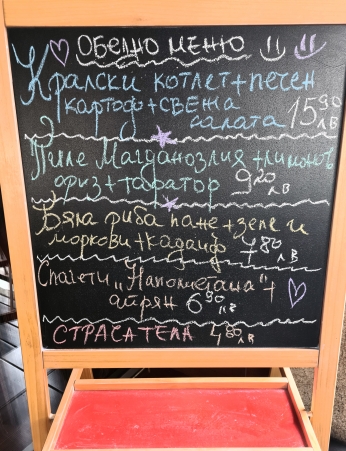 ОБЕДНО МЕНЮ
Кралски котлет+печен
картоф+свежа
салата 15⁹⁰ лв
Пиле Магданозлия+лимонов
ориз+таратор 9²⁰ лв
Бяла риба пане+зеле и
моркови+кадаиф 7⁸⁰ лв
Спагети „Наполитана"+
айрян 6⁹⁰ лв
СТРАСАТЕЛА 4⁸⁰ лв